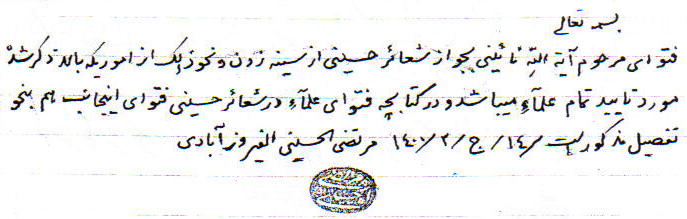 بسمه تعالی
فتوای مرحوم آیة الله نائینی بجواز شعائر حسینی از سینه زدن و نحو ذلك از اموریکه بالا تذکر شد
مورد تایید تمام علمآء میباشد و در کتابچه فتوای علمآء در شعائر حسینی فتوای اینجانب هم بنحو
تفصیل مذکور است ١٤/ج/٢/١٤٠٠ مرتضی الحسینی الفیروزآبادی